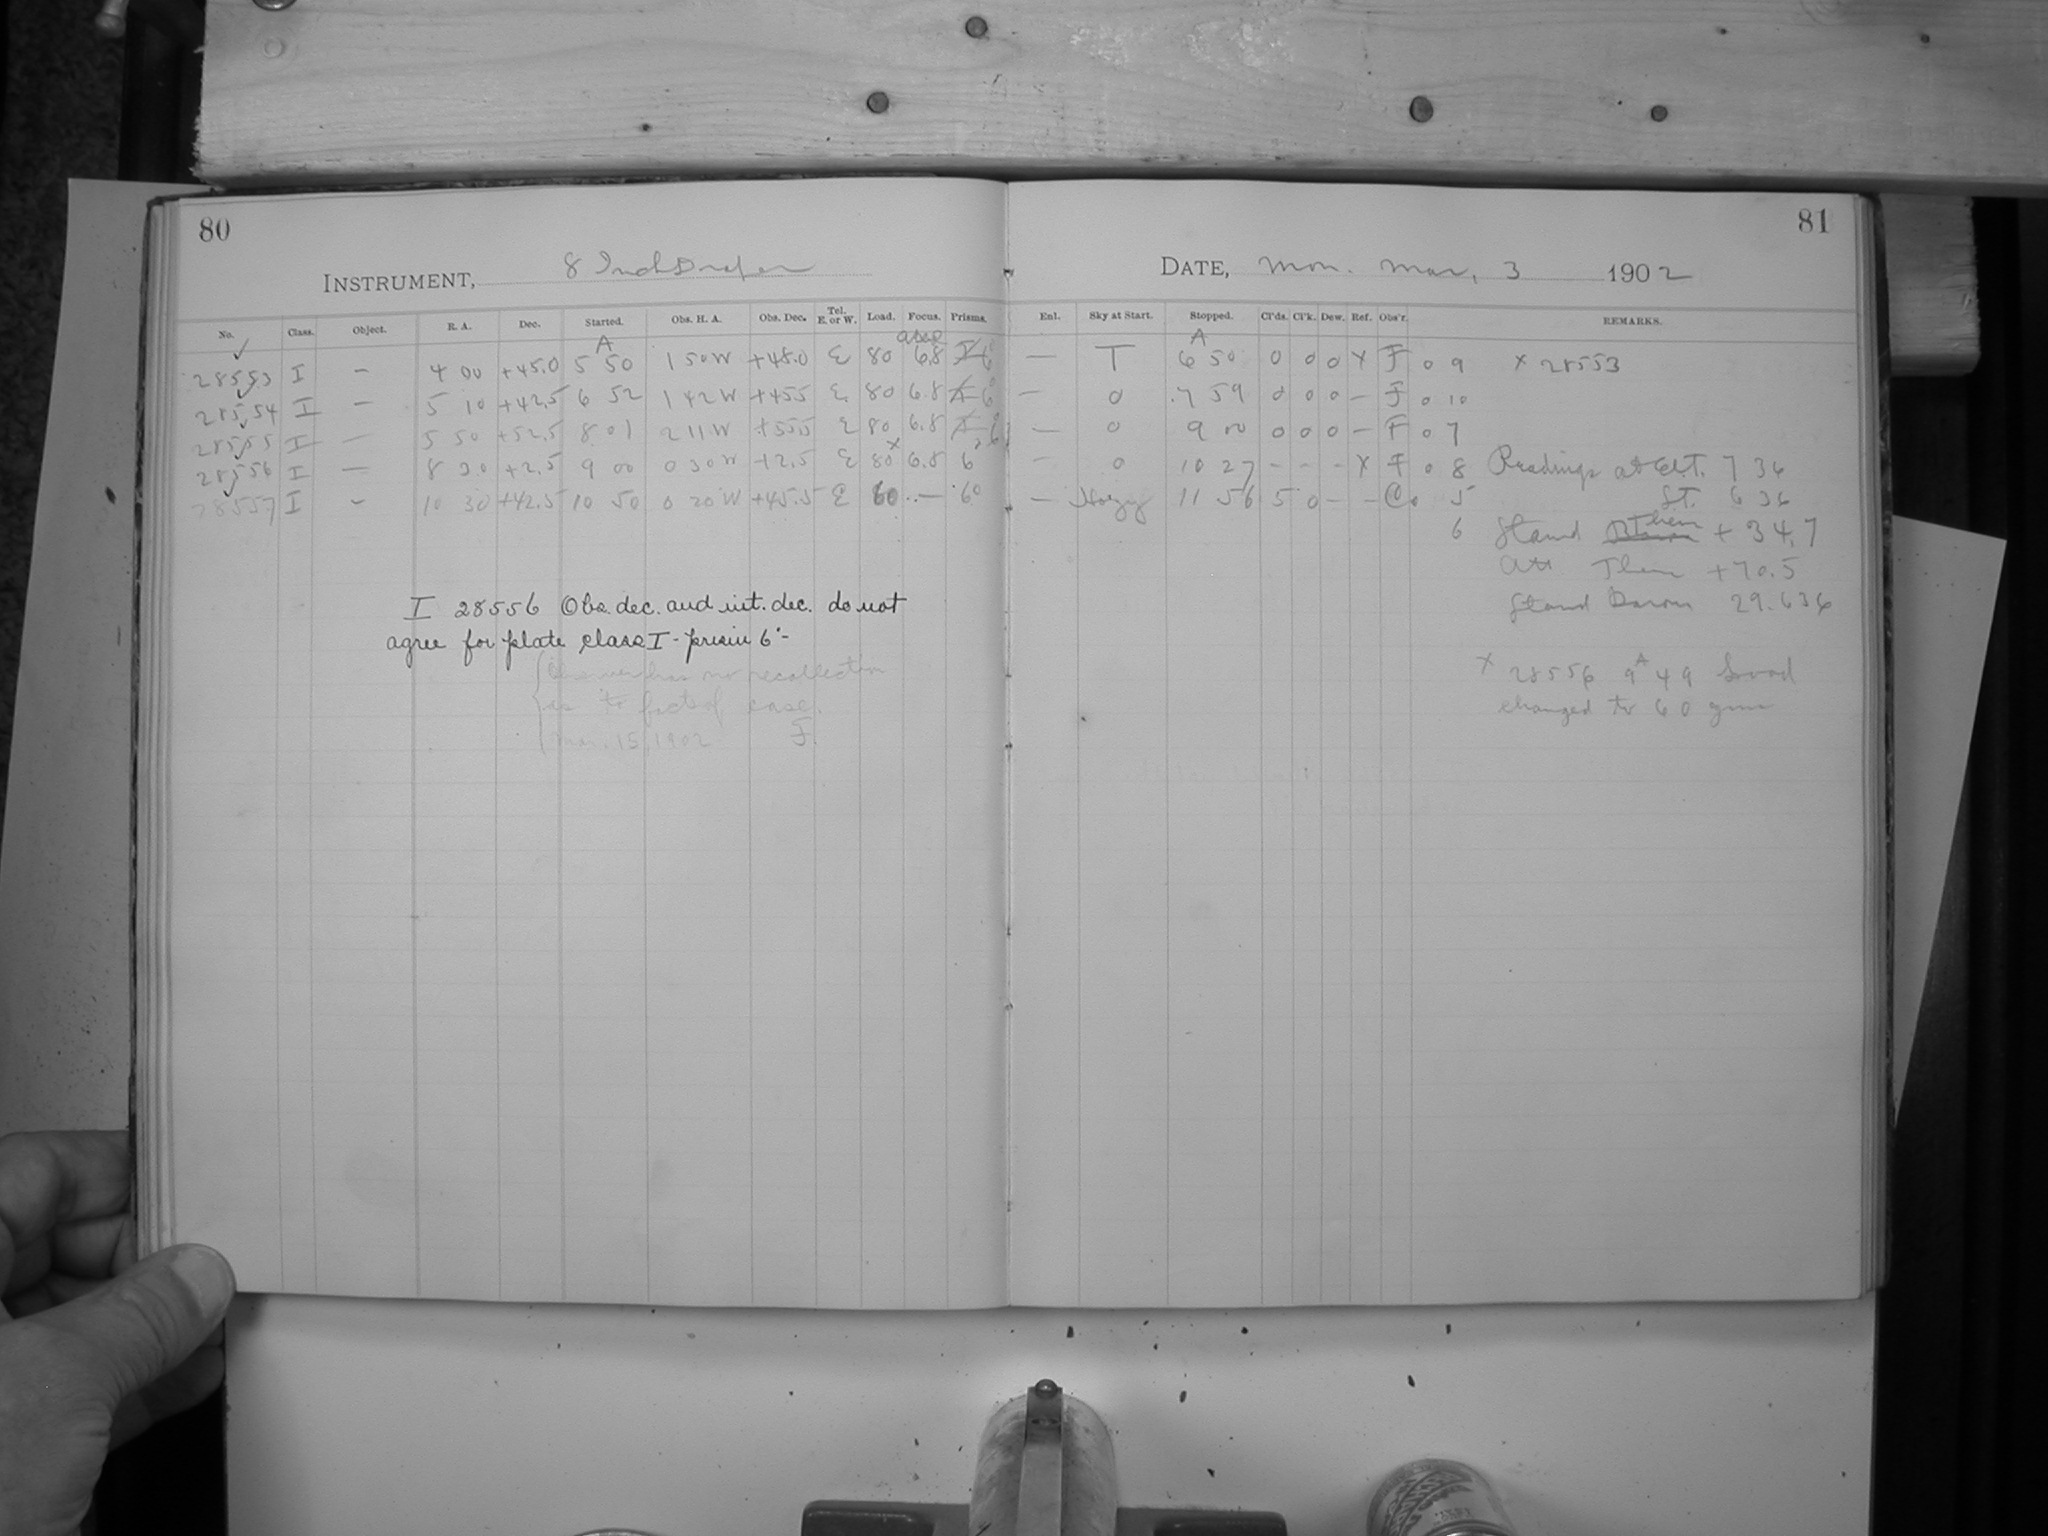 80
INSTRUMENT, 8 Inch Draper
No. Class. Object. R. A. Dec. Started. Obs. H. A. Obs. Dec. Tel. E. or W. Load. Focus. Prisms.
28553 I – 4 00 +45.0 A 5 50 1 50 W +48.0 E 80 6.8 6°
28554 I – 5 10 +42.5 6 52 1 42 W +45.5 E 80 6.8 6°
28555 I – 5 50 +52.5 8 01 2 11 W +55.5 E 80 6.8 6°
28556 I – 8 30 +2.5 9 00 0 30 W +2.5 E 80 x 6.8 6°
28557 I – 10 30 +42.5 10 50 0 20 W +45.5 E 60 – 6°
I 28556 Obs. dec. and int. dec. do not
agree for plate class I - prism 6°-
Observer has no recollection
as to facts of case.
Mar. 15, 1902 F.
81
DATE, Mon. Mar. 3 1902
Enl. Sky at Start. Stopped. Cl'ds. Cl'k. Dew. Ref. Obs'r. REMARKS.
– T A 6 50 0 0 0 x F 0 9 x 28553
– 0 7 59 0 0 0 – F 0 10
– 0 9 00 0 0 0 – F 0 7
– 0 10 27 – – – x F 0 8 Readings at Clt. 7 36
– Hazy 11 56 5 0 – – C 0 5 St. 6 36
6 Stand Ther + 34.7
Att Ther +70.5
Stand Barom 29.636
x 28556 9 A 49 Load
changed to 60 gm